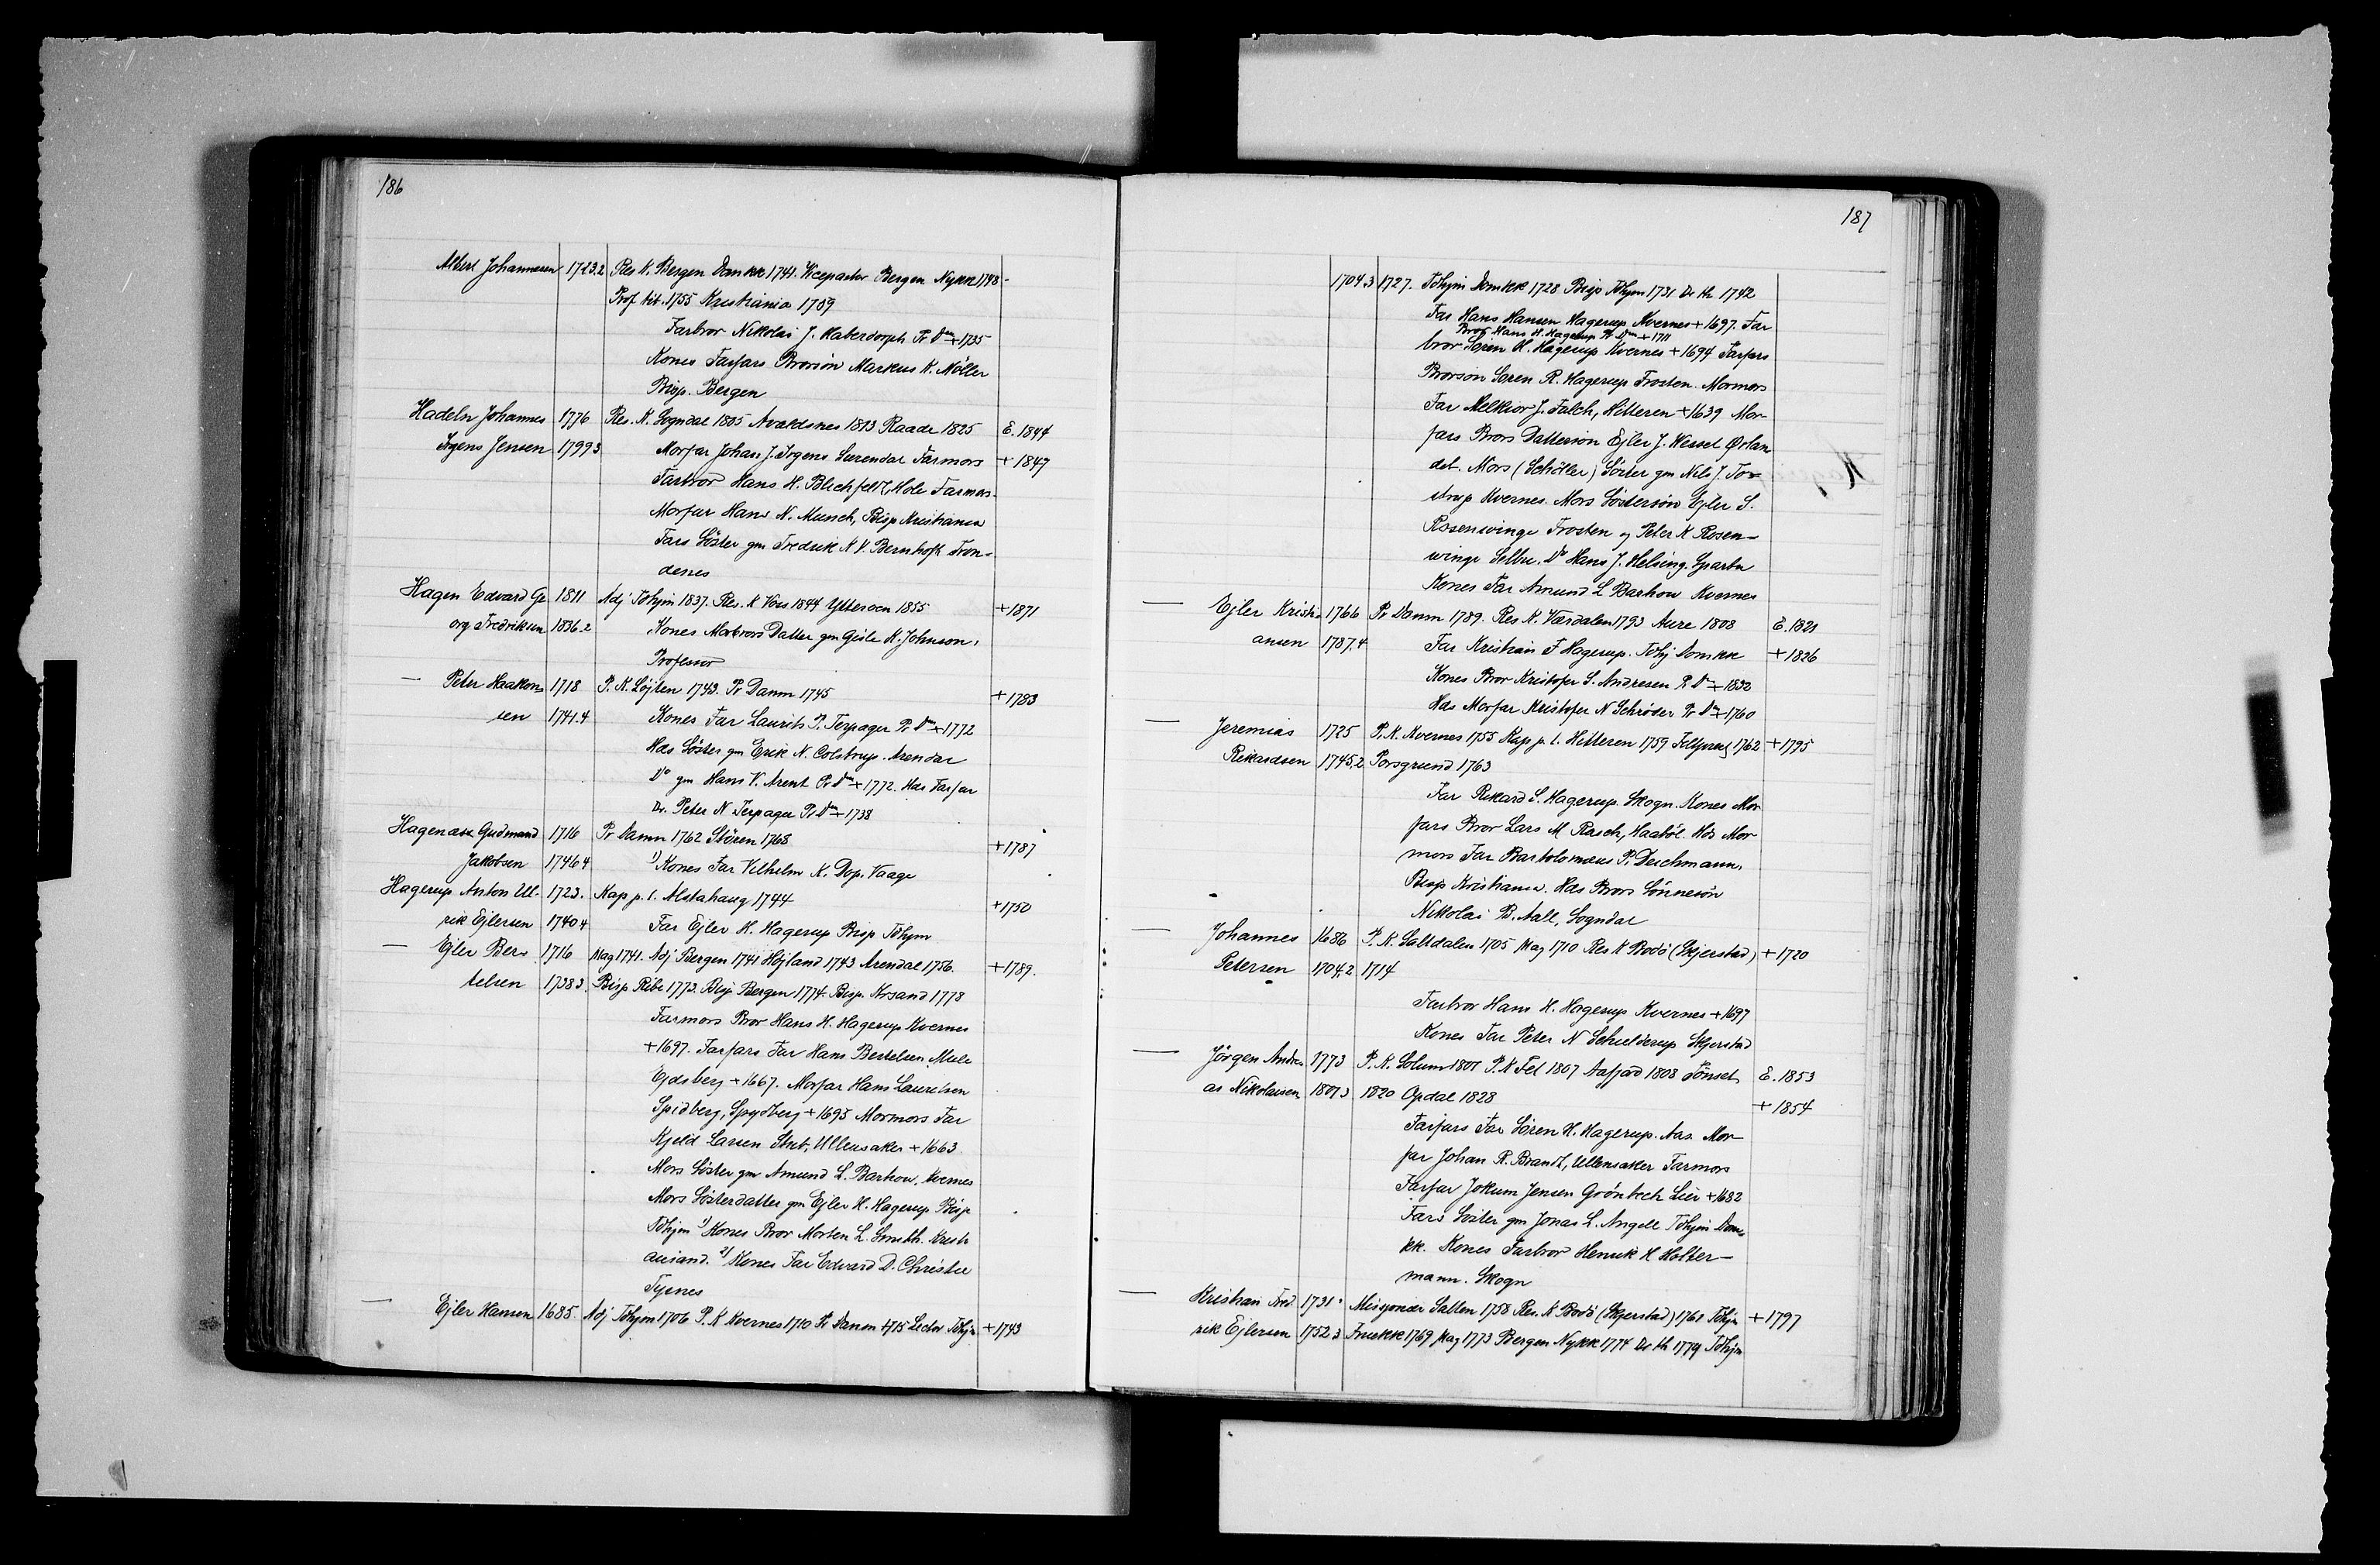 186
Albert Johannesen 1723.2 Res K. Bergen Domkk 1741. Vicepastor Bergen Nykk 1748-
Prof tit. 1755 Kristiania 1709
Farbror Nikolai J. Haberdorph Pr Dm +1735
Kones Farfars Brorsön Markus K. Möller
Bisp. Bergen
Hadeln Johannes 1776 Res. K. Sogndal 1805 Avaldsnes 1813 Raade 1825 E. 1844
Irgens Jensen 1799 3 Morfar Johan J. Irgens Surendal Farmors + 1847
Farbror Hans H. Blichfeldt, Hole Farmors
Morfar Hans N. Munch, Bisp Kristiania
Fars Söster gm Fredrik N V. Bernhoft Tron-
denes
Hagen Edvard Ge 1811 Adj Tdhjm 1837. Res. K Voss 1844 Ytteröen 1855 +1871
org Fredriksen 1836.2 Kones Morbrors Datter gm Gisle K. Johnson,
Professor
— Peter Haakons 1718 P. K. Löjten 1743. Pr Danm 1745 +1783
sen 1741.4 Kones Far Laurits P. Terpager Pr Dm +1772
Hds Söster gm Erik N. Colstrup. Arendal
Do gm Hans V. Arent Pr Dm +1772. Hds Farfar
Dr. Peter N Terpager Pr Dm +1738
Hagenass Gudmand 1716 Pr Danm 1762 Stören 1768 +1787
Jakobsen 1746 4 1) Kones Far Vilhelm K. Dop. Vaage
Hagerup Anton Ul- 1723. Kap p. l. Alstahaug 1744 +1750
rik Ejlersen 1740 4 Far Ejler H. Hagerup Bisp Tdhjm
— Ejler Ber- 1716 Mag 1741. Adj Bergen 1741 Höjland 1743 Arendal 1756. +1789.
telsen 1738 3. Bisp Ribe 1773. Bisp Bergen 1774. Bisp. Krsand 1778
Farmors Bror Hans H. Hagerup Kvernes
+1697. Farfars Far Hans Bertelsen Mule
Ejdsberg +1667. Morfar Hans Lauritsen
Spidberg, Spydberg +1695 Mormors Far
Kjeld Larsen Stub, Ullensaker +1663
Mors Söster gm Amund L. Barhow. Kvernes
Mors Sösterdatter gm Ejler H. Hagerup Bisp
Tdhjm 1) Kones Bror Morten L. Smith. Kristi
ansand. 2) Kones Far Edvard D. Christie
Tysnes
— Ejler Hansen 1685. Adj Tdhjm 1706 P. K Kvernes 1710 Pr Danm 1715 Lector Tdhjm +1743
187
1704.3 1727. Tdhjm Domkk 1728 Bisp Tdhjm 1731 Dr th 1742
Far Hans Hansen Hagerup Kvernes +1697. Far
Bror Hans H. Hagerup Pr Dm +1711
bror Sören H. Hagerup Kvernes +1694 Farfars
Brorsön Sören R. Hagerup Frosten. Mormors
Far Melkior J. Falch, Hitteren +1639 Mor-
fars Brors Dattersön Ejler J. Wessel Ørlan
det. Mors (Schöller) Söster gm Nils J. Tor-
strup Kvernes. Mors Söstersön Ejler S.
Rosenvinge Frosten og Peter K Rosen-
vinge Selbu. Do Hans J. Helsing. Sparbu
Kones Far Amund L Barhow Kvernes
— Ejler Kristi- 1766 Pr Danm 1789. Res K. Værdalen 1793 Aure 1808 E. 1821
ansen 1787.4 Far Kristian F Hagerup. Tdhj Domkk + 1826
Kones Bror Kristofer S. Andresen Pr Dm +1832
Hds Morfar Kristofer N Schröder Pr Dm +1760
— Jeremias 1725 P. K. Kvernes 1755 Kap p. l. Hitteren 1759 1762 +1795
Rikardsen 1745.2 Porsgrund 1763
Far Rikard S. Hagerup. Skogn. Kones Mor
fars Bror Lars M Rasch, Haaböl. Hds Mor
mors Far Bartolomæus P. Deichmann,
Bisp Kristiania. Hds Brors Sönnesön
Nikolai B. Aall, Sogndal
— Johannes 1686 P. K. Saltdalen 1705 Mag 1710 Res K Bodö (Skjerstad) +1720
Petersen 1704.2 1714
Farbror Hans H. Hagerup Kvernes +1697
Kones Far Peter N Schielderup Skjerstad
— Jörgen Andre- 1773 P. K. Solum 1801 P. K Fet 1807 Aafjord 1808 Tönset E. 1853
as Nikolaisen 1801 3 1820 Opdal 1828 + 1854
Farfars Far Sören H. Hagerup. Aas. Mor-
far Johan R. Brandt, Ullensaker Farmors
Farfar Jokum Jensen Grönbech Lier +1682
Fars Söster gm Jonas L. Angell Tdhjm Dom-
kk. Kones Farbror Henrik H Holter-
mann. Skogn
— Kristian Fred- 1731 Misjonær Salten 1758 Res. K Bodö (Skjerstad) 1761 Tdhjm +1797
rik Ejlersen 1752 3 Fruekk 1769 Mag 1773 Bergen Nykk 1774 Dr th 1779 Tdhjm